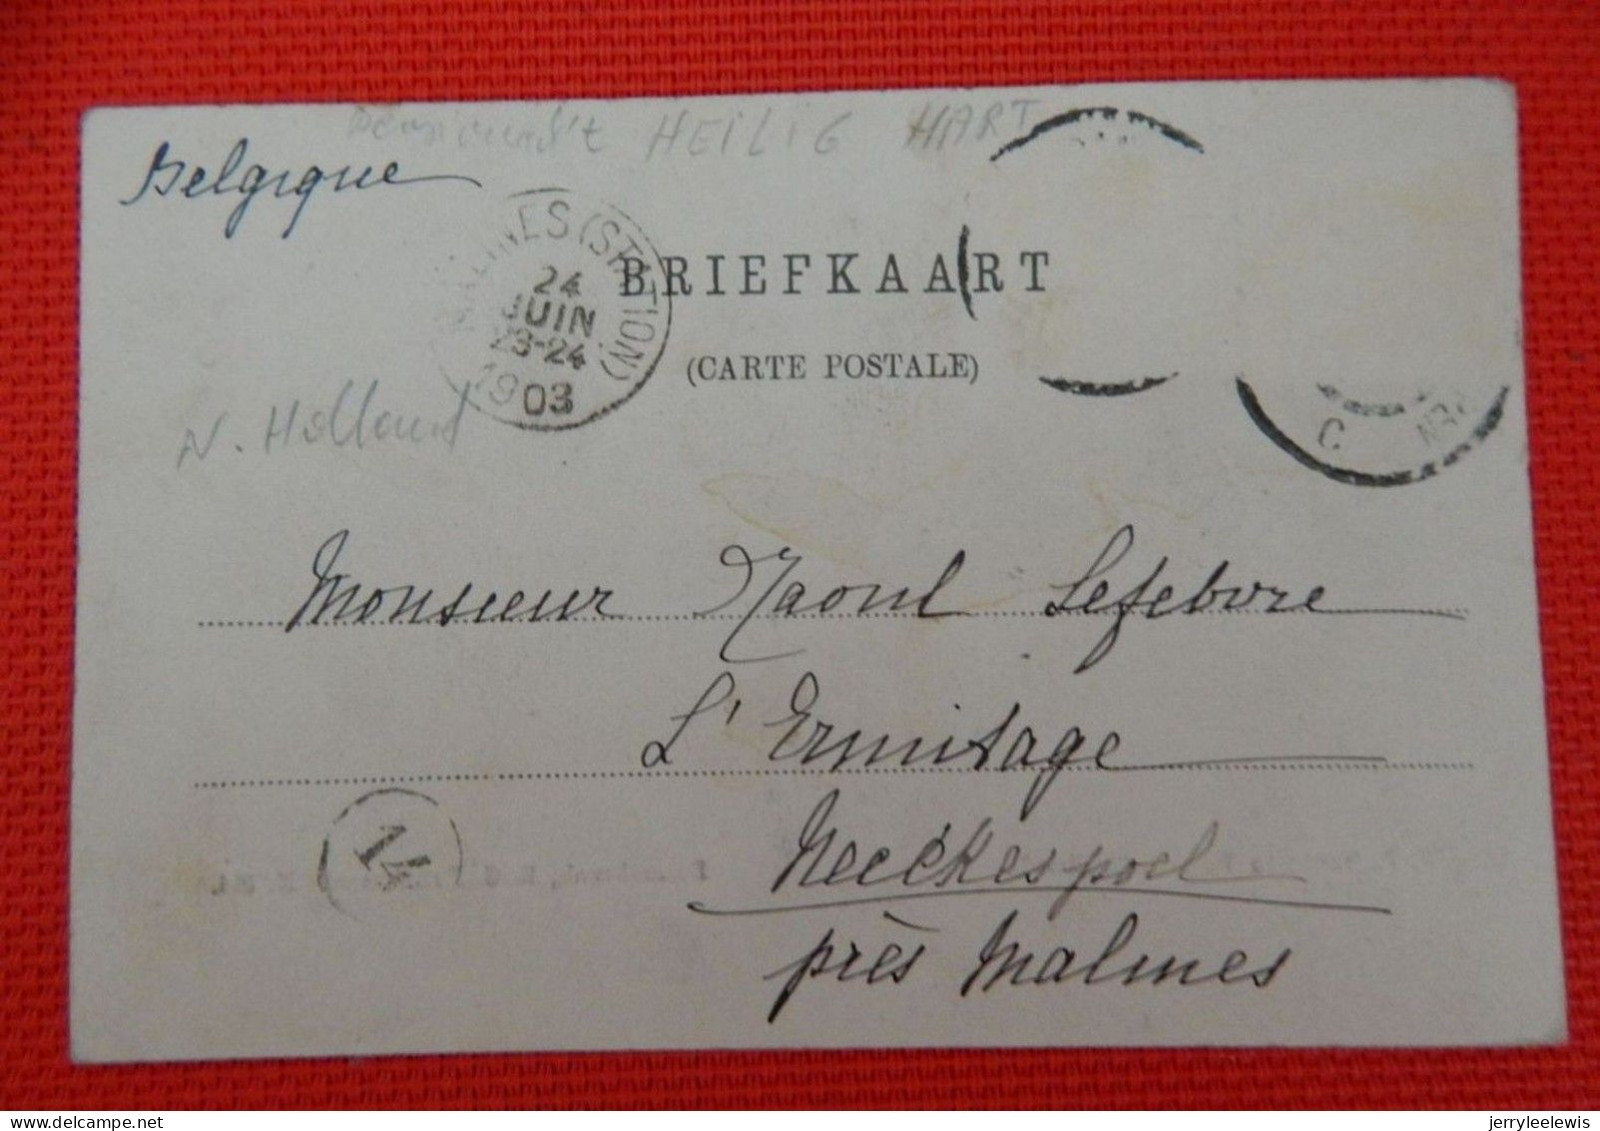 't HEILIG HART
Belgique
MALINES (STATION)
24
JUIN
23-24
1903
BRIEFKAART
(CARTE POSTALE)
N. Holland
Monsieur Raoul Lefebvre
L'Ermitage
Neeckespoel
près Malines
14
jerryleelewis
delcampe.net